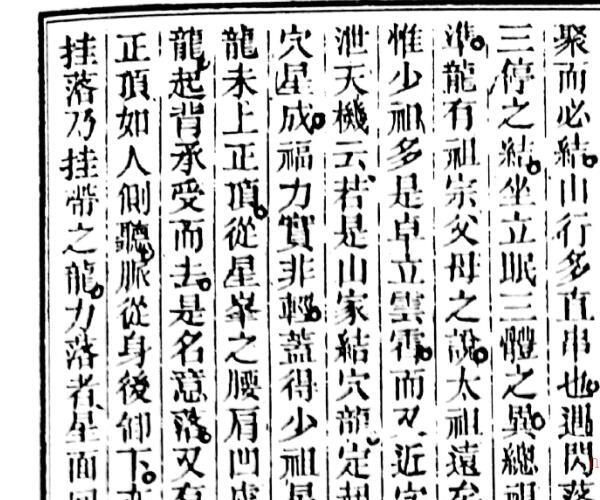 聚而必結。山行多直串也。遇閃
三停之結。坐立眠三體之異。總
準。龍有祖宗父母之說。太祖遠
惟少祖多是卓立雲霄。而又近
泄天機云。若是山家結穴龍。定
穴星成。福力實非輕。蓋得少祖
龍未上正頂。從星峯之腰肩凹
龍起背承受而去。是名意落。又有
正頂如人側聽。脈從身後仰下。
挂落乃挂帶之龍。力落者星面